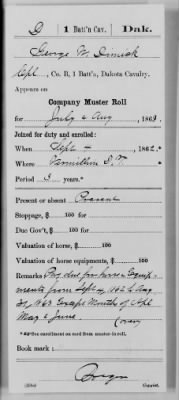 D 1 Batt'n Cav. Dak.
George W. Dimick
Co. B, 1 Batt'n, Dakota Cavalry.
Appears on
Company Muster Roll
for July & Aug, 1863.
Joined for duty and enrolled:
When Sept 4, 1862.
Where Vermillion D.T. *
Period 3 years.*
Present or absent Present
Stoppage, $ 100 for
Due Gov't, $ 100 for
Valuation of horse, $ 100
Valuation of horse equipments, $ 100
Remarks Pay due for horse & Equip-
ments from Sept 4, 1862 to Aug
31, 1863 Except Months of Apl
May & June.
(over)
*See enrollment on card from muster-in roll.
Book mark:
(358)
Copyist.